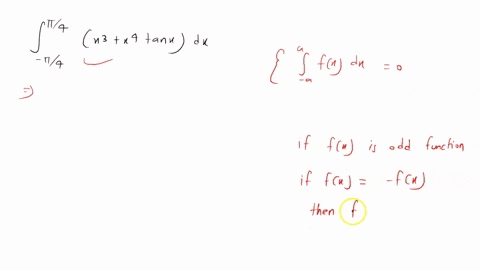 ∫_{-π/4}^{π/4} (x3 + x4 tanx) dx
⇒
{ ∫_{-a}^{a} f(x) dx = 0
if f(x) is odd function
if f(x) = -f(x)
then f